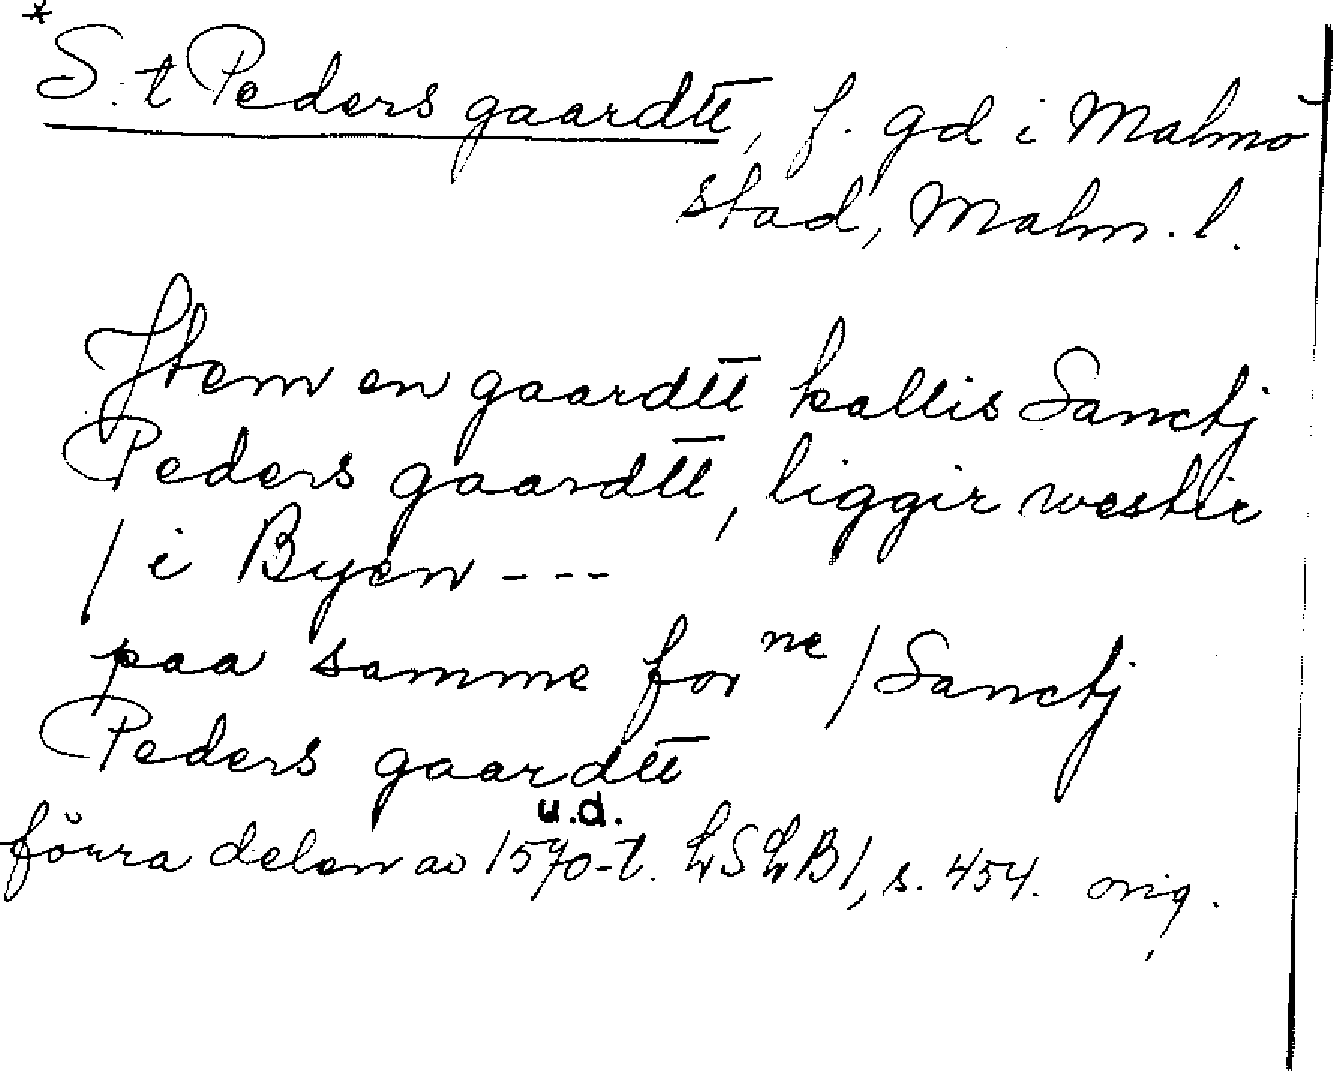 *
S:t Peders gaardtt̅, f. gd i Malmö
stad, Malm. l.
Jtem en gaardtt̅ kallis Sanctj
Peders gaardtt̅, liggir westir
/ i Byen - - -
paa samme for ⁿᵉ / Sanctj
Peders gaardtt̅
u.d.
förra delen av 1590-t. LSLB1, s. 454. orig.